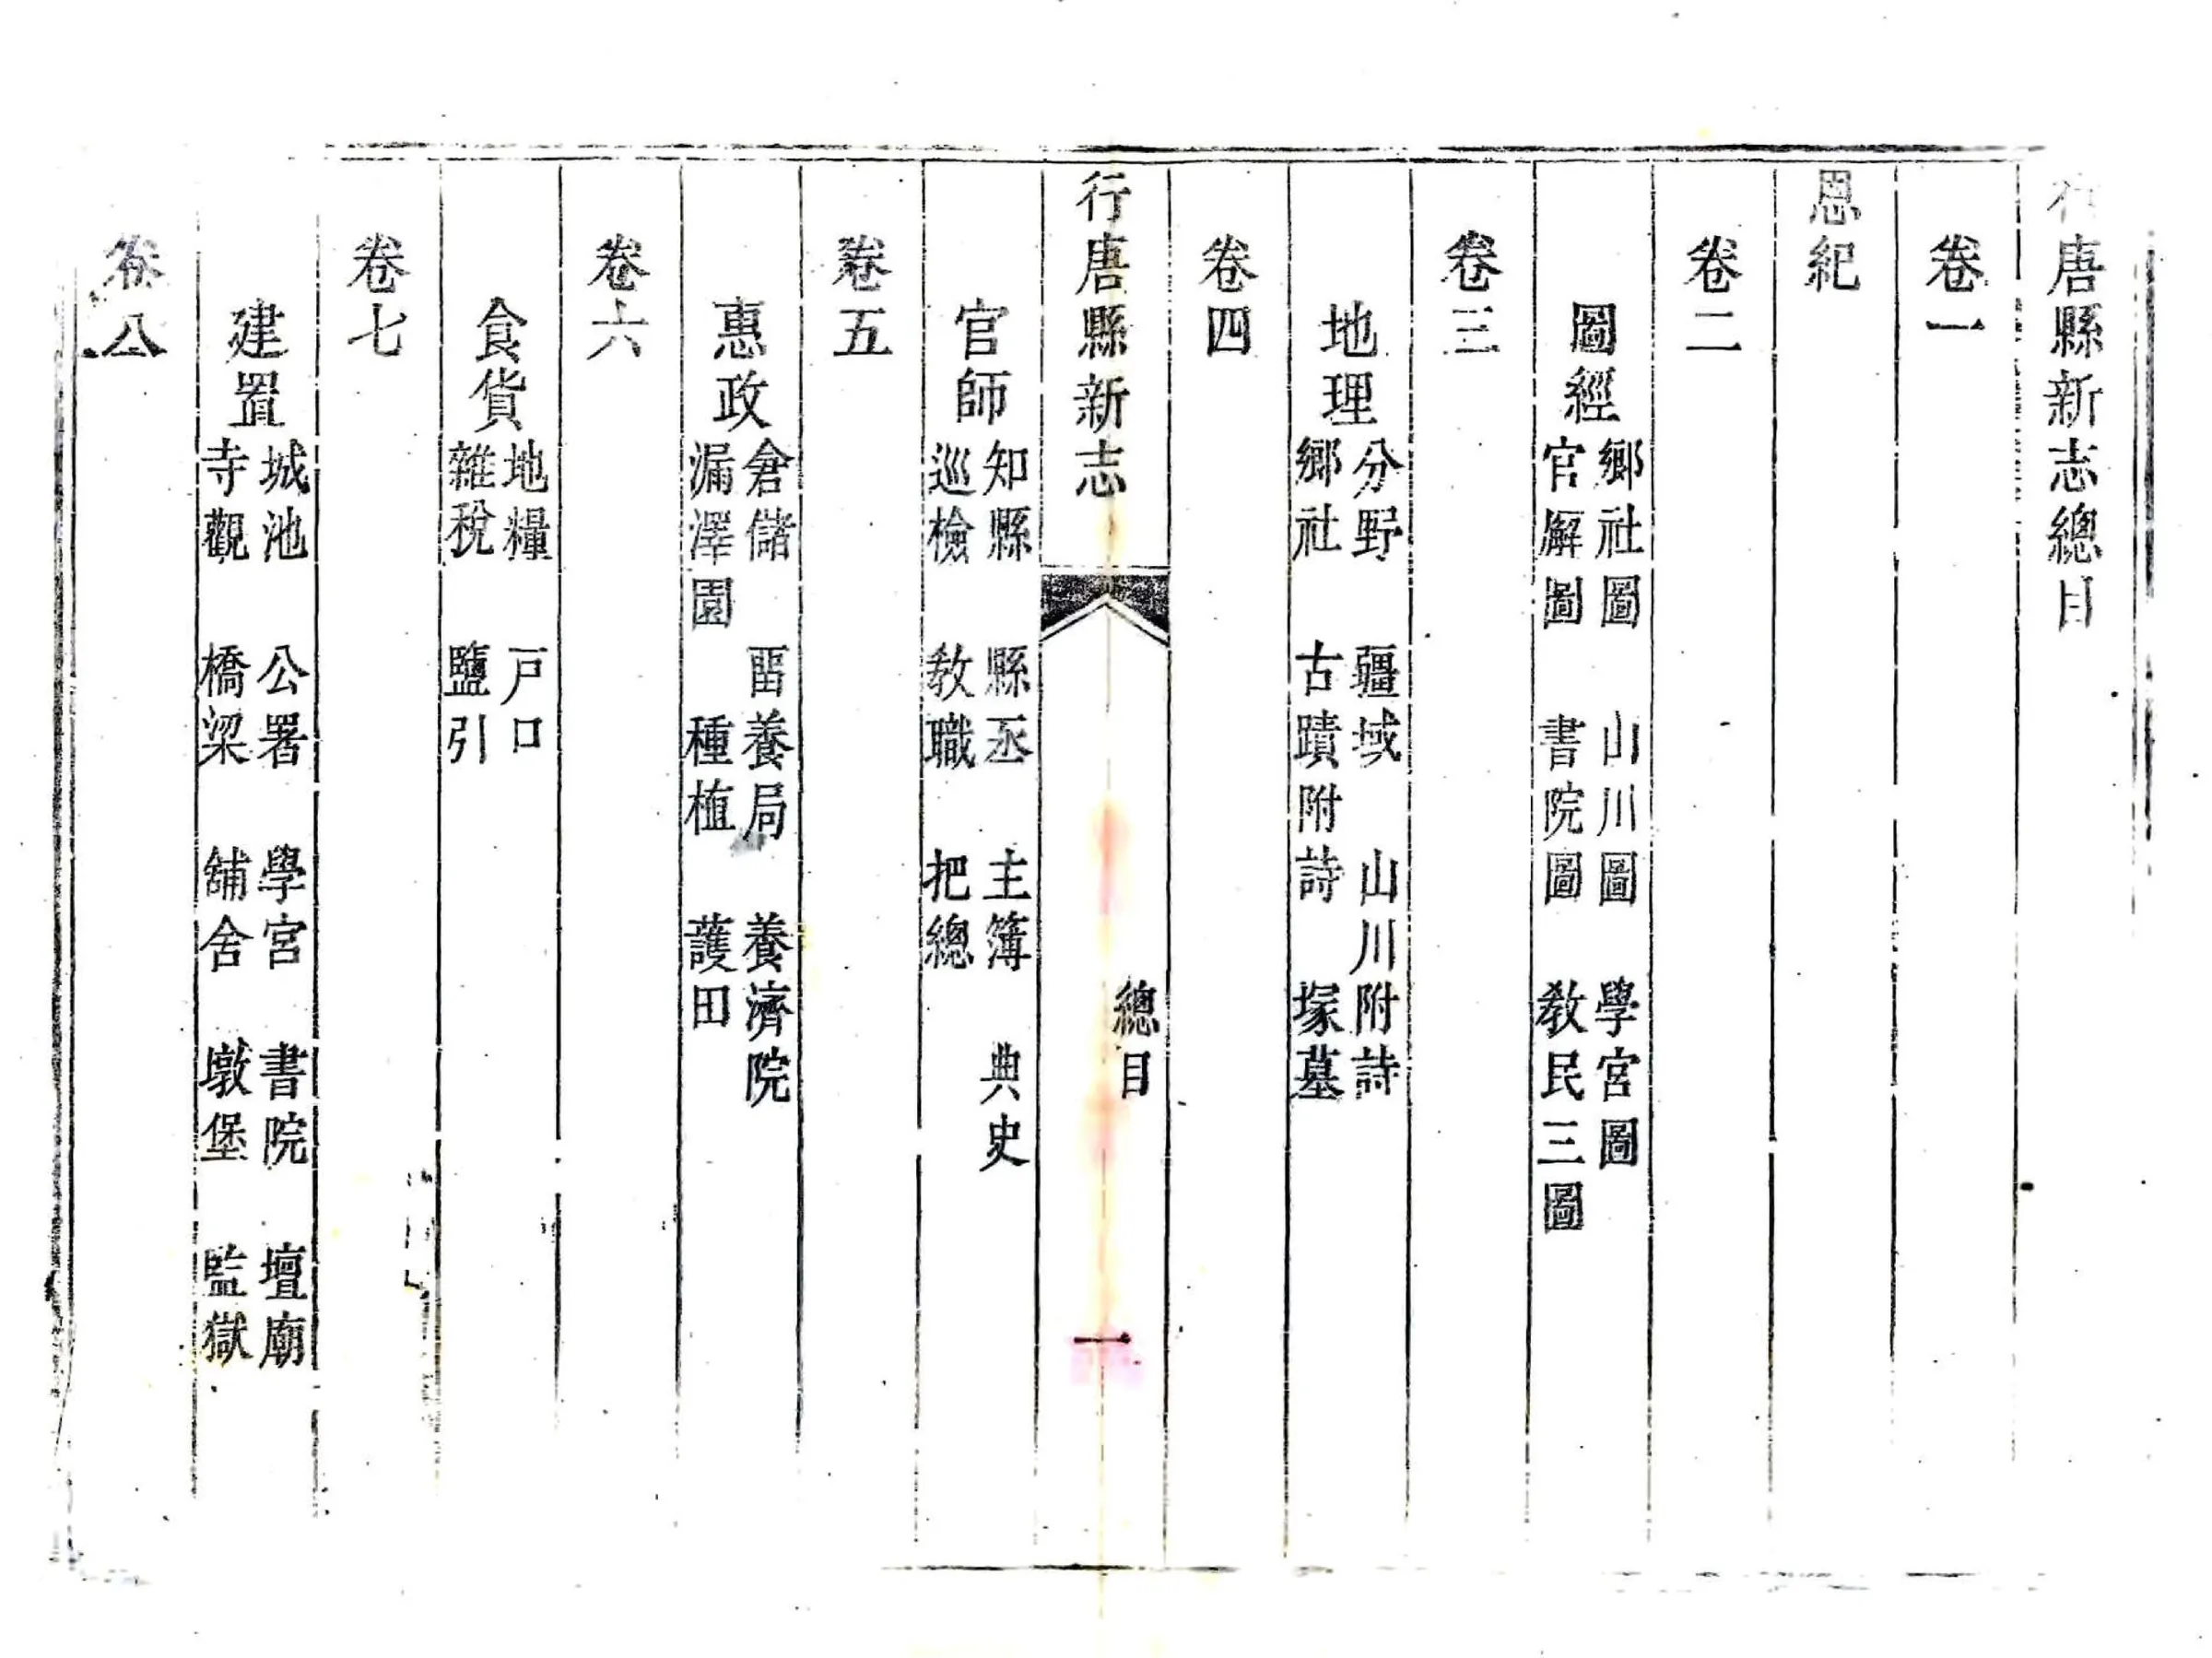 行唐縣新志總目
卷一
恩紀
卷二
圖經
鄉社圖 山川圖 學宮圖
官廨圖 書院圖 敎民三圖
卷三
地理
分野 疆域 山川附詩
鄉社 古蹟附詩 塚墓
卷四
行唐縣新志 總目 一
官師
知縣 縣丞 主簿 典史
巡檢 敎職 把總
卷五
惠政
倉儲 畱養局 養濟院
漏澤園 種植 護田
卷六
食貨
地糧 戸口
雜稅 鹽引
卷七
建置
城池 公署 學宮 書院 壇廟
寺觀 橋梁 舖舍 墩堡 監獄
卷八